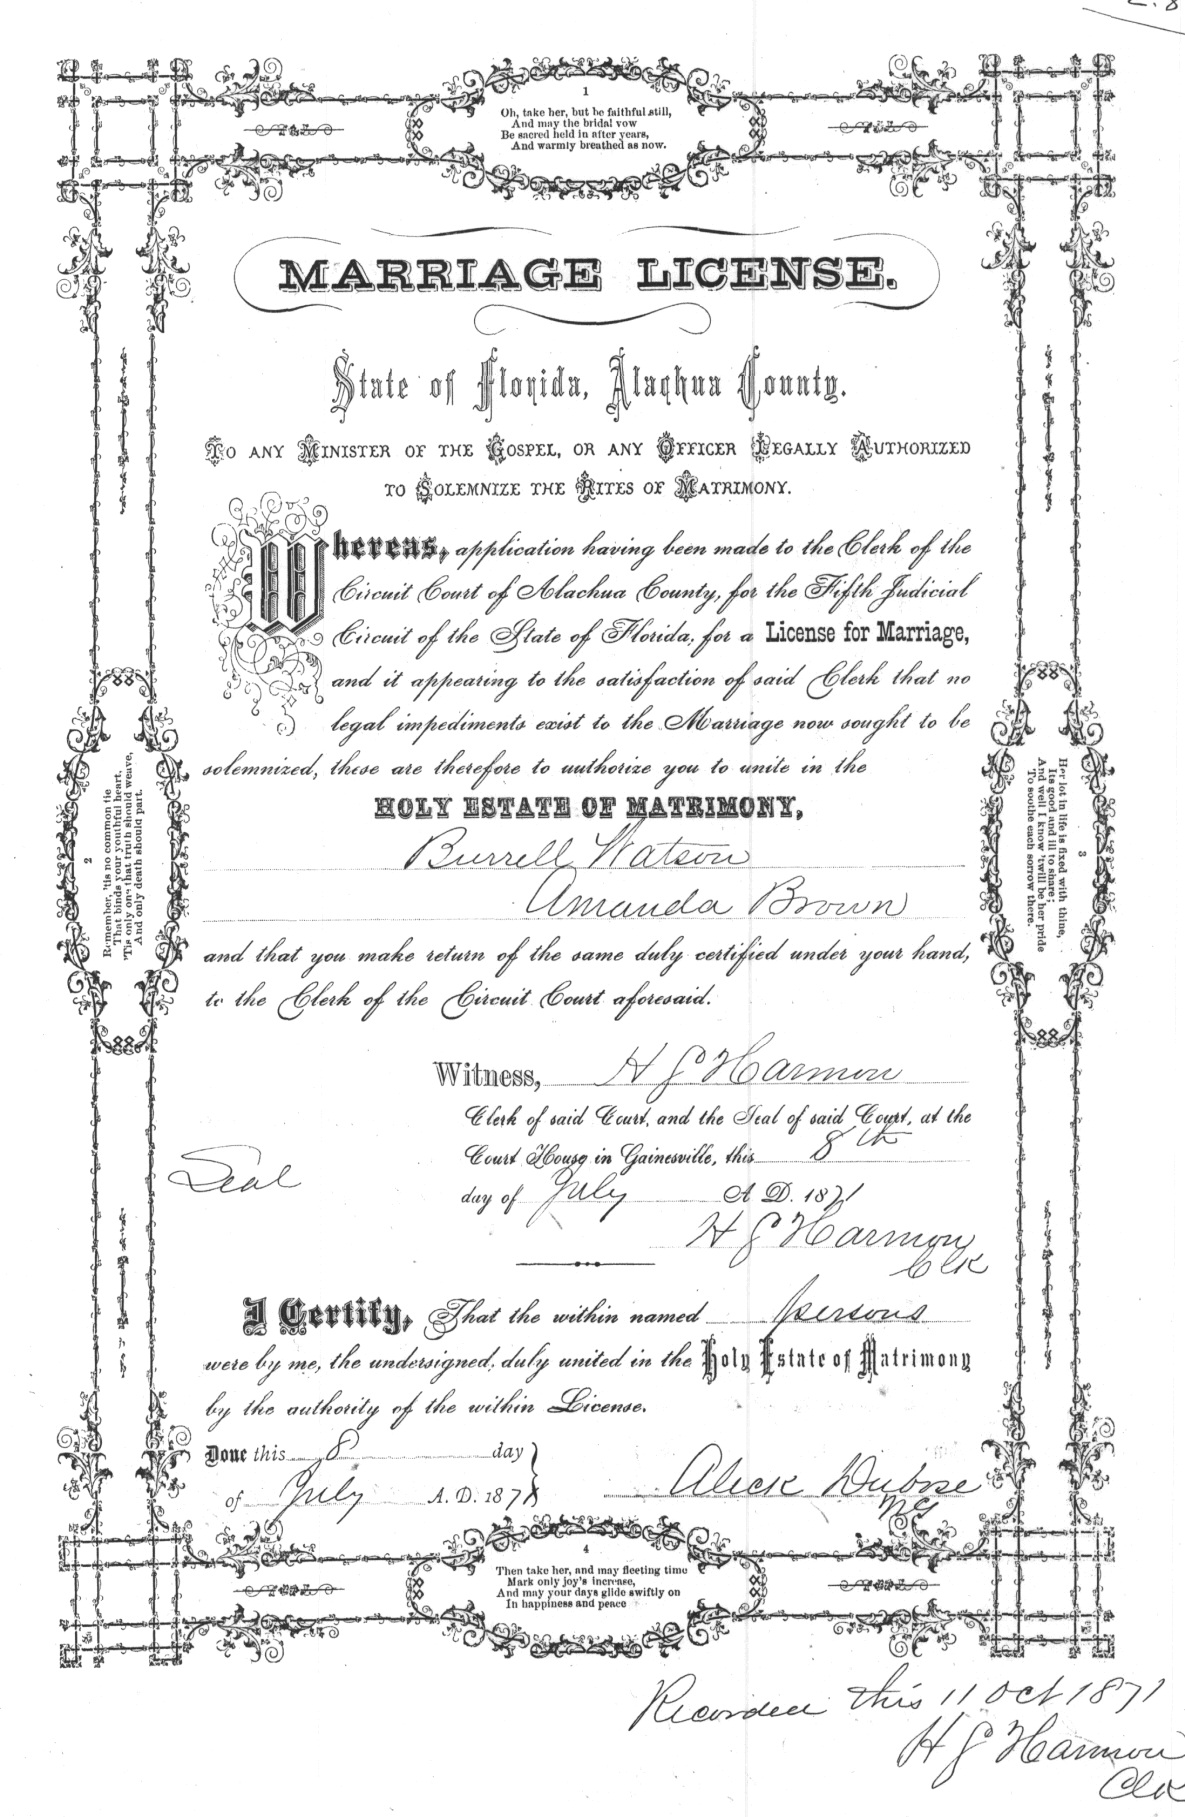 1
Oh, take her, but be faithful still,
And may the bridal vow
Be sacred held in after years,
And warmly breathed as now.
MARRIAGE LICENSE.
State of Florida, Alachua County.
TO ANY MINISTER OF THE GOSPEL, OR ANY OFFICER LEGALLY AUTHORIZED
TO SOLEMNIZE THE RITES OF MATRIMONY.
Whereas, application having been made to the Clerk of the
Circuit Court of Alachua County, for the Fifth Judicial
Circuit of the State of Florida, for a License for Marriage,
and it appearing to the satisfaction of said Clerk that no
legal impediments exist to the Marriage now sought to be
solemnized, these are therefore to authorize you to unite in the
HOLY ESTATE OF MATRIMONY,
Burrell Watson
Amanda Brown
and that you make return of the same duly certified under your hand,
to the Clerk of the Circuit Court aforesaid.
Witness, H J Harmon
Clerk of said Court, and the Seal of said Court, at the
Court House in Gainesville, this 8th
day of July A D. 1871
Seal
H J Harmon
Clk
I Certify, That the within named persons
were by me, the undersigned, duly united in the Holy Estate of Matrimony
by the authority of the within License.
Done this 8 day
of July A. D. 1871
Alick Dubose
MG
2
Remember, 'tis no common tie
That binds your youthful heart,
'Tis only one that truth should weave,
And only death should part.
3
Her lot in life is fixed with thine,
Its good and ill to share;
And well I know 'twill be her pride
To soothe each sorrow there.
4
Then take her, and may fleeting time
Mark only joy's increase,
And may your days glide swiftly on
In happiness and peace
Recorded this 11 Oct 1871
H J Harmon
Clk